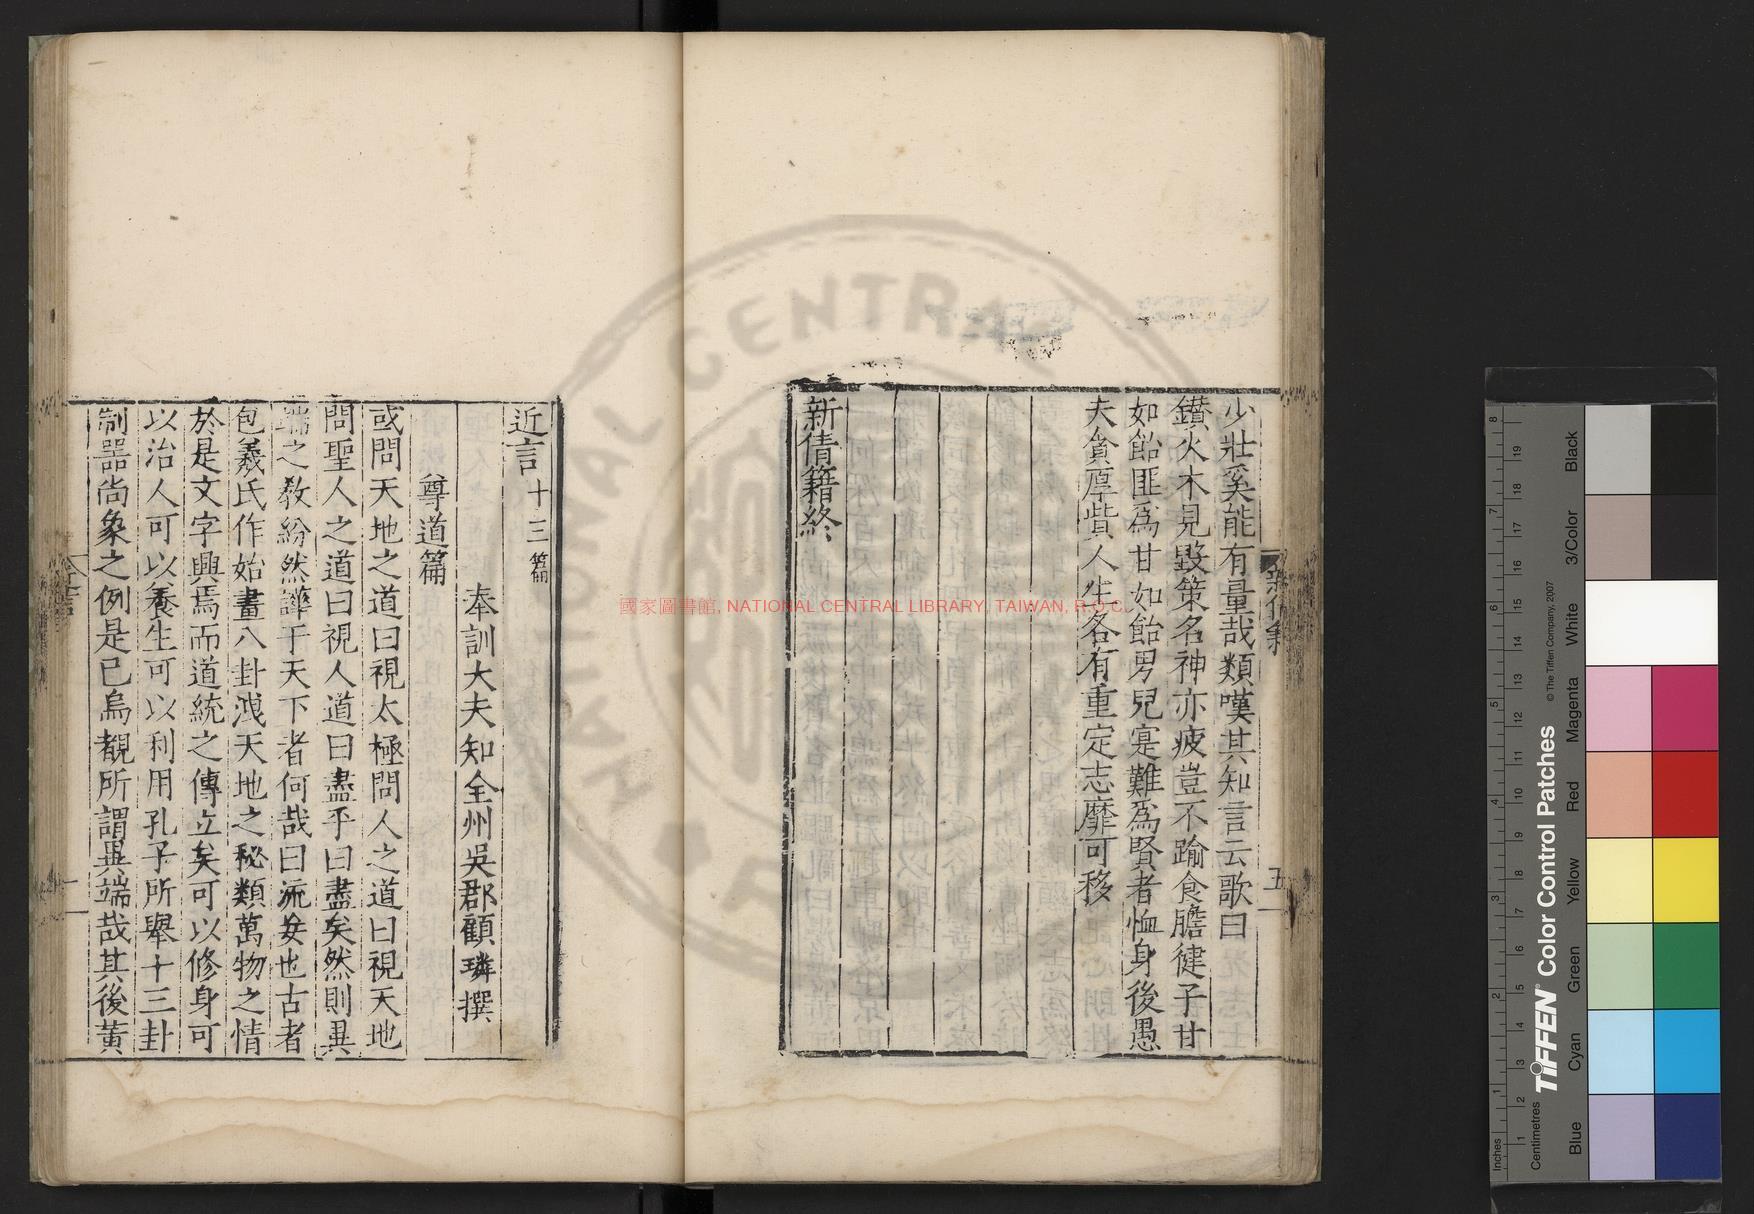 少壯奚能有量哉類嘆其知言云歌曰
鑚火木見毀策名神亦疲豈不踰食膽徤子甘
如飴匪為甘如飴男兒寔難為賢者恤身後愚
夫貪厚貲人生各有重定志靡可移
新倩籍終
五
近言十三篇
奉訓大夫知全州吳郡顧璘撰
尊道篇
或問天地之道曰視太極問人之道曰視天地
問聖人之道曰視人道曰盡乎曰盡矣然則異
端之教紛然譁于天下者何哉曰誣妄也古者
包羲氏作始畫八卦洩天地之秘類萬物之情
於是文字興焉而道統之傳立矣可以修身可
以治人可以養生可以利用孔子所舉十三卦
制器尚象之例是已烏覩所謂異端哉其後黃
國家圖書館, NATIONAL CENTRAL LIBRARY, TAIWAN, R.O.C.
CENTRAL
Inches 1 2 3 4 5 6 7 8
Centimetres 1 2 3 4 5 6 7 8 9 10 11 12 13 14 15 16 17 18 19
TIFFEN® Color Control Patches
© The Tiffen Company, 2007
Blue
Cyan
Green
Yellow
Red
Magenta
White
3/Color
Black